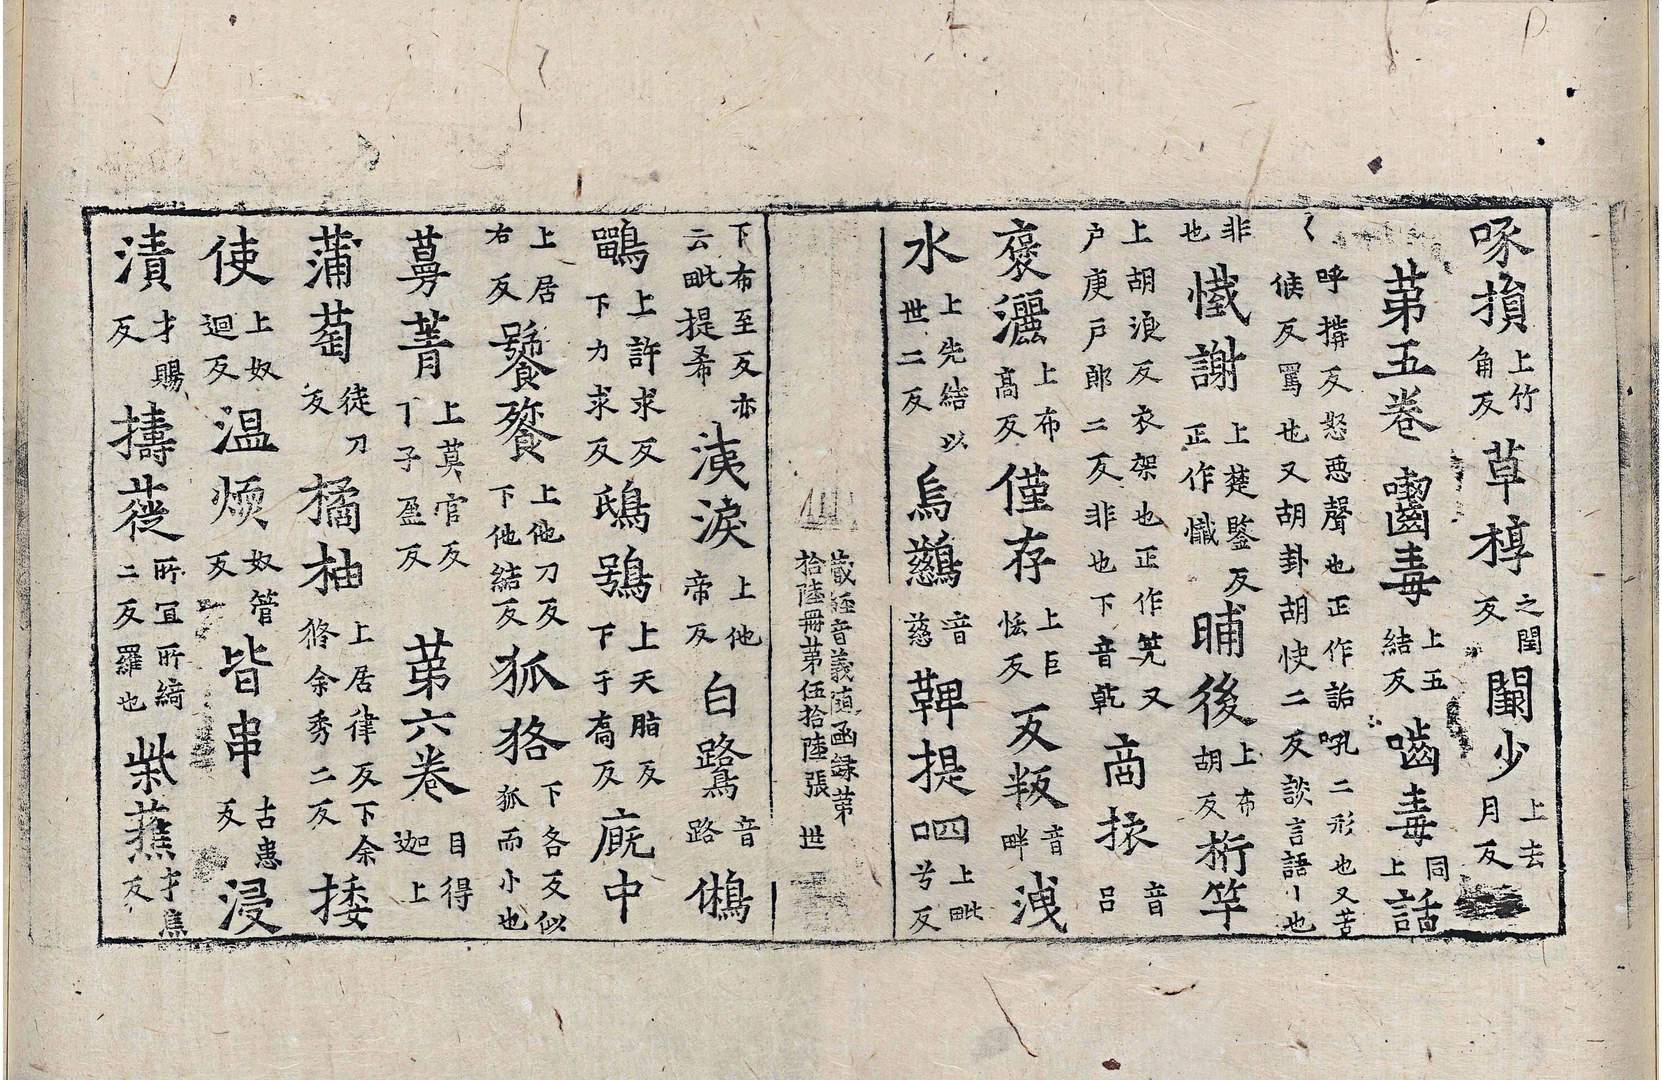 啄損上竹角反草椁之閏反闌少上去月反
第五卷囓毒上五結反嚙毒同上話
〻呼講反怒惡聲也正作詬吼二形也又苦候反罵也又胡卦胡快二反談言語〻也
非也懴謝上楚鑒反正作懺晡後上布胡反桁竿
上胡浪反衣架也正作筅又户庚戸郎二反非也下音乾商㨿音吕
褒灑上布高反僅存上巨恡反反叛音畔洩
水上先結以世二反烏鷀音慈鞞提呬上毗兮反
藏經音義随函録第拾陸冊第伍拾陸張 世
下布至反亦云毗提希洟淚上他帝反白鷺音路鵂
鶹上許求反下力求反鴟鴞上天脂反下于喬反廐中
上居右反饕餮上他刀反下他結反狐狢下各反似狐而小也
蔓菁上莫官反下子盈反第六卷目得迦上
蒲萄徒刀反橘柚上居律反下余狢余秀二反捼
使上奴迴反温煗奴管反皆串古患反浸
漬才賜反擣蓰所宜所綺二反羅也紫蕉才焦反